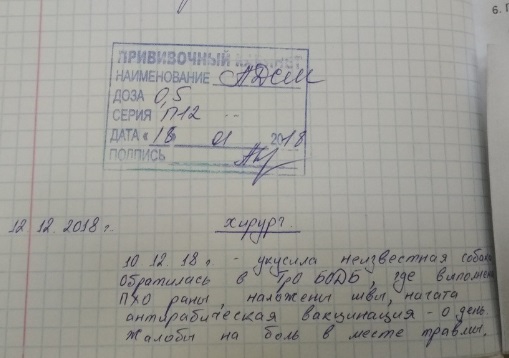 6.
ПРИВИВОЧНЫЙ КАБИНЕТ
НАИМЕНОВАНИЕ АДСМ
ДОЗА 0,5
СЕРИЯ П12
ДАТА «18» 01 2018
ПОДПИСЬ
12.12.2018г. хирург
10.12.18г - укусила неизвестная собака
Обратилась в ТрО БОДБ, где выполнена
ПХО раны, наложены швы, начата
антирабическая вакцинация - 0 день.
Жалобы на боль в месте травмы.